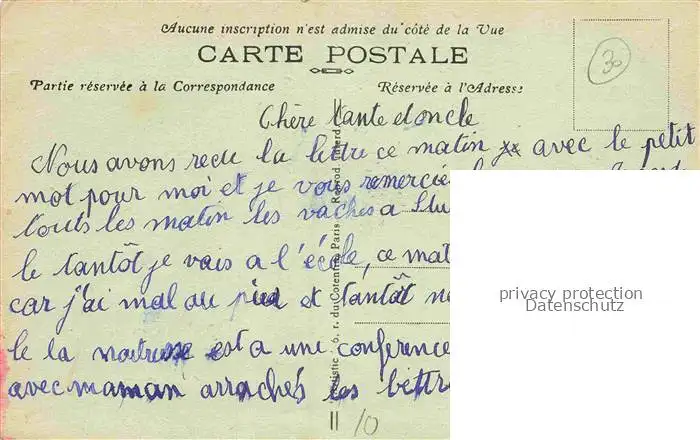 Aucune inscription n'est admise du côté de la Vue
CARTE POSTALE
Partie réservée à la Correspondance
Réservée à l'Adresse
30
Chère tante et oncle
Nous avons recu la lettre ce matin avec le petit
mot pour moi et je vous remercie
touts les matin les vaches a
le tantôt je vais a l'école, ce mat
car j'ai mal au pied et tantôt
le la est a une conference
avec maman arrachés les bettr
r. du Cotentin Paris
Reprod.
10
privacy protection
Datenschutz